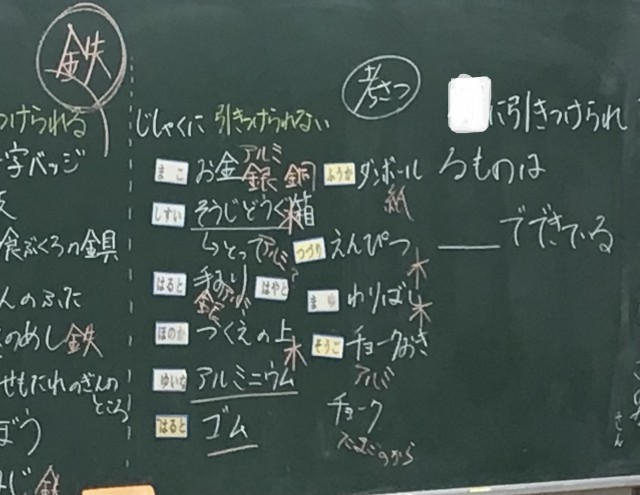 鉄
つけられる
字バッジ
食ぶくろの金具
んのふた
のめし鉄
せもたれのぎんの
ところ
ぼう
じゃくに 引きつけられない
まこ お金 アルミ 銀 銅
しすい そうじどうぐ箱 木
とって アルミ
はると はやと
ほのか づくえの上 木
ゆいな アルミニウム
はると ゴム
ふうか ダンボール 紙
つづり えんぴつ 木
まゆ わりばし 木
そうご チョークおき
アルミ
チョーク
たまごのから
考さつ
に引きつけられ
るものは
でできている